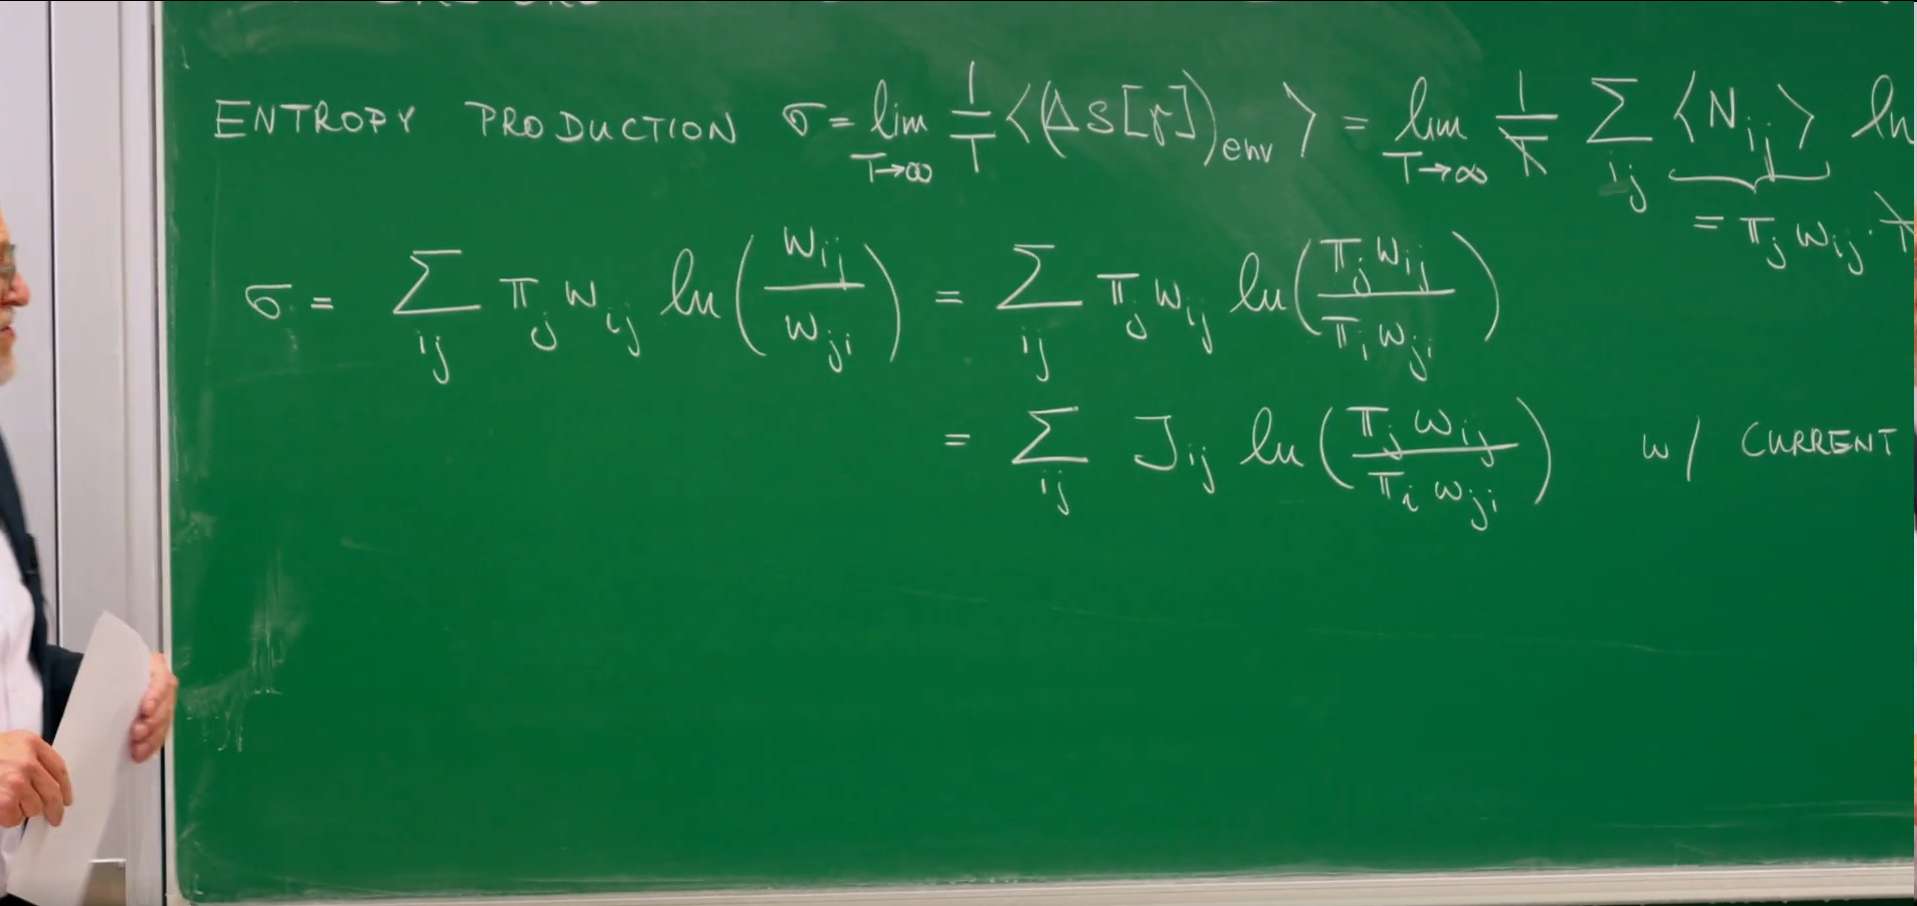 ENTROPY PRODUCTION σ = lim_{T→∞} 1/T ⟨(Δs[γ])_{env}⟩ = lim_{T→∞} 1/T ∑_{ij} ⟨N_{ij}⟩ ln
= π_j w_{ij} · T
σ = ∑_{ij} π_j w_{ij} ln(w_{ij}/w_{ji}) = ∑_{ij} π_j w_{ij} ln(π_j w_{ij}/π_i w_{ji})
= ∑_{ij} J_{ij} ln(π_j w_{ij}/π_i w_{ji}) w/ CURRENT